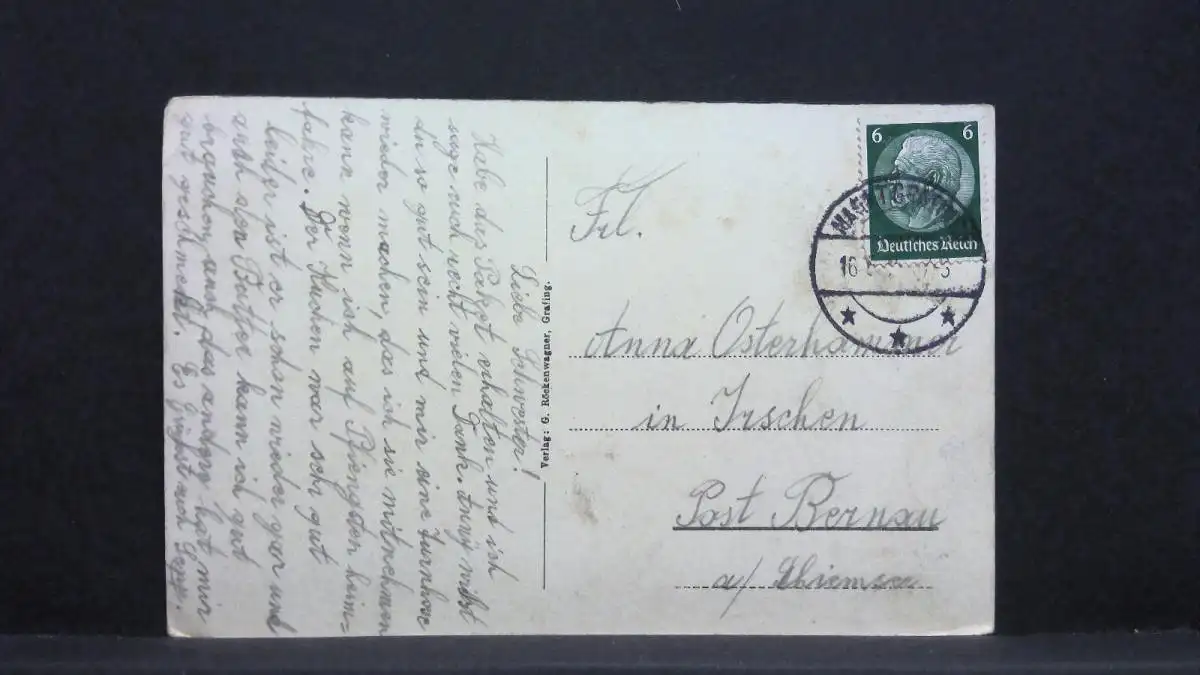 Liebe Schwester!
Habe das Paket erhalten und ich
sage euch recht vielen Dank. Anny müßt
du so gut sein und mir eine Turnhose
wieder machen, das ich sie mitnehmen
kann wenn ich auf Pfingsten heim=
fahre. Der Kuchen war sehr gut
leider ist er schon wieder gar und
auch den Butter kann ich gut
brauchen, auch das andere hat mir
gut geschmeckt. Es grüßt euch Sepp.
Verlag: G. Röckenwagner, Grafing.
6 6
Deutsches Reich
16
Frl.
Anna Osterhammer
in Irschen
Post Bernau
a/ Chiemsee